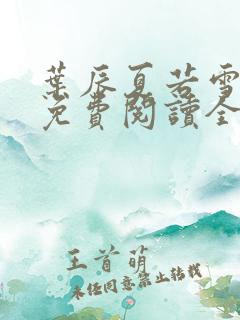 葉辰夏若雪
免費閱讀全
王首萌
未经同意禁止转载